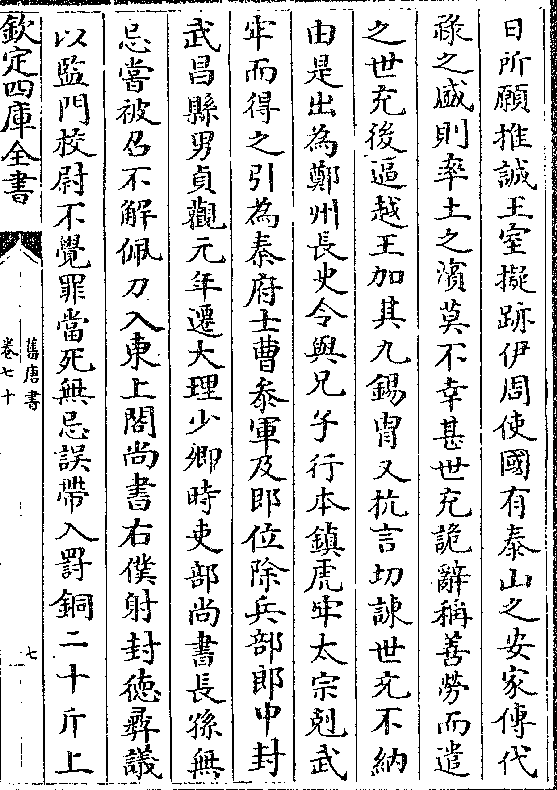 日所願推誠王室擬跡伊周使國有泰山之安家傳代
祿之盛則率土之濱莫不幸甚世充詭辭稱善勞而遣
之世充後逼越王加其九錫胄又抗言切諫世充不納
由是出為鄭州長史令與兄子行本鎮虎牢太宗剋武
牢而得之引為秦府士曹叅軍及即位除兵部郎中封
武昌縣男貞觀元年遷大理少卿時吏部尚書長孫無
忌嘗被召不解佩刀入東上閤尚書右僕射封徳彛議
以監門校尉不覺罪當死無忌誤帶入罰銅二十斤上
欽定四庫全書
舊唐書
卷七十
七